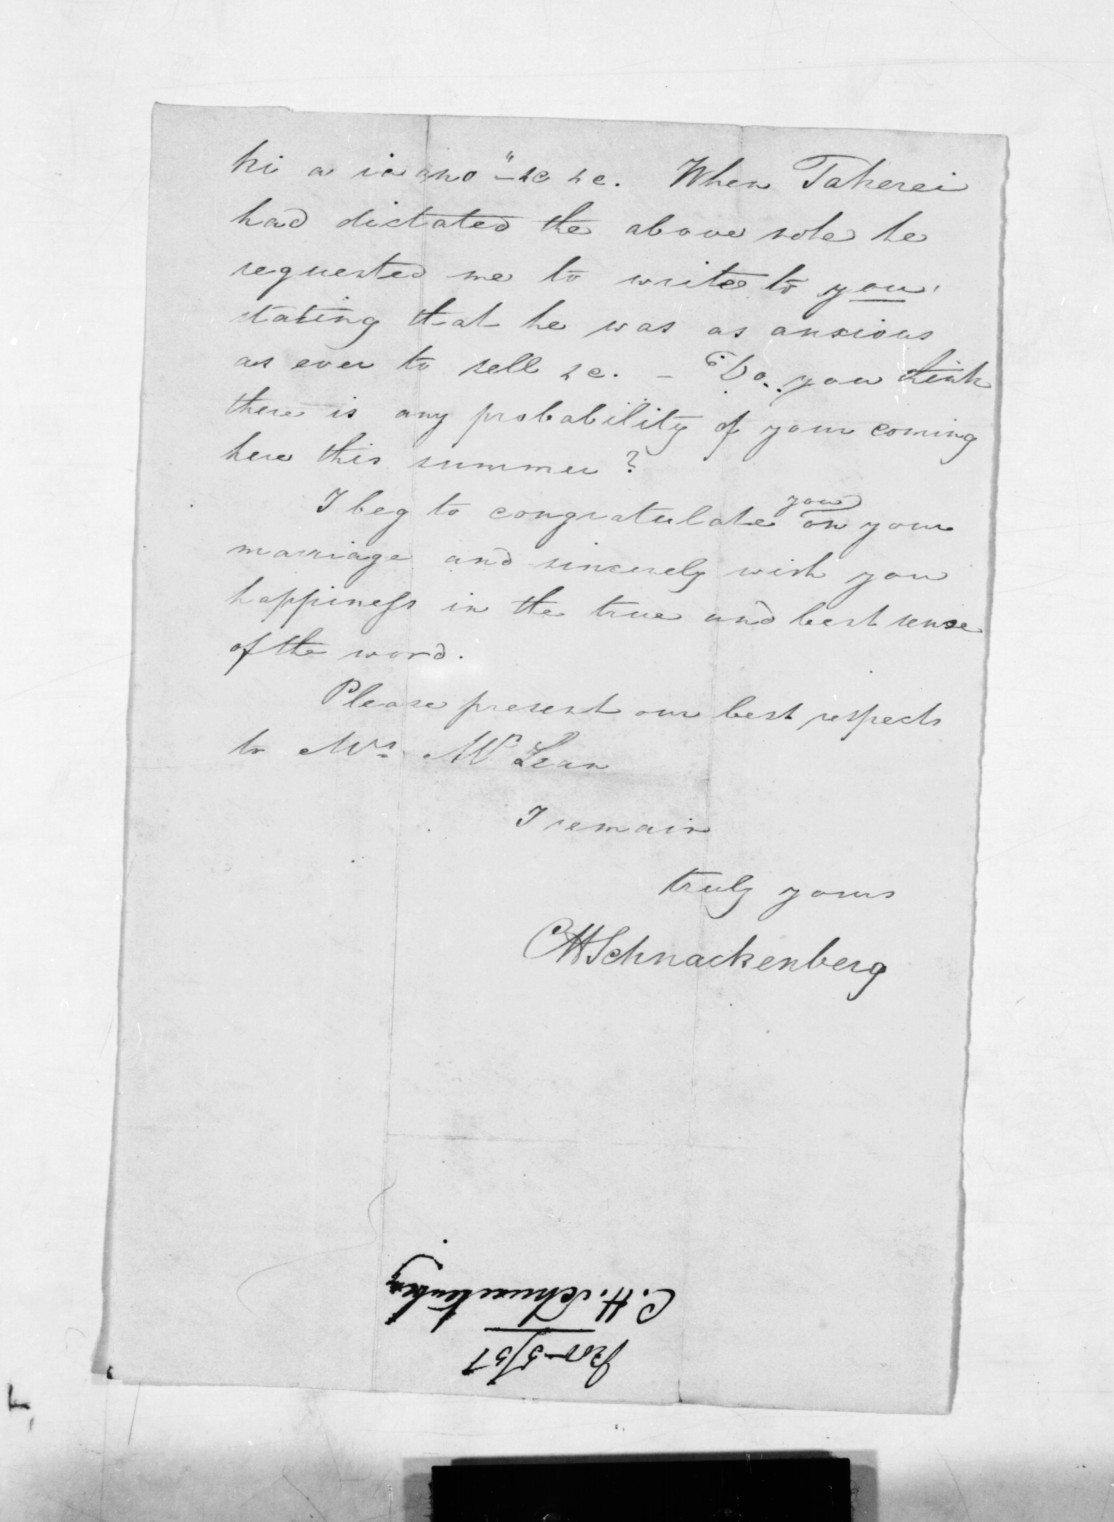 ki a ia ano" - &c &c. When Takerei
had dictated the above note he
requested me to write to you,
stating that he was as anxious
as ever to sell &c. - Do you think
there is any probability of your coming
here this summer?
I beg to congratulate you on your
marriage and sincerely wish you
happiness in the true and best sense
of the word.
Please present our best respects
to Mrs. McLean
I remain
truly yours
CHSchnackenberg
Nov 5/51
C. H. Schnackenberg